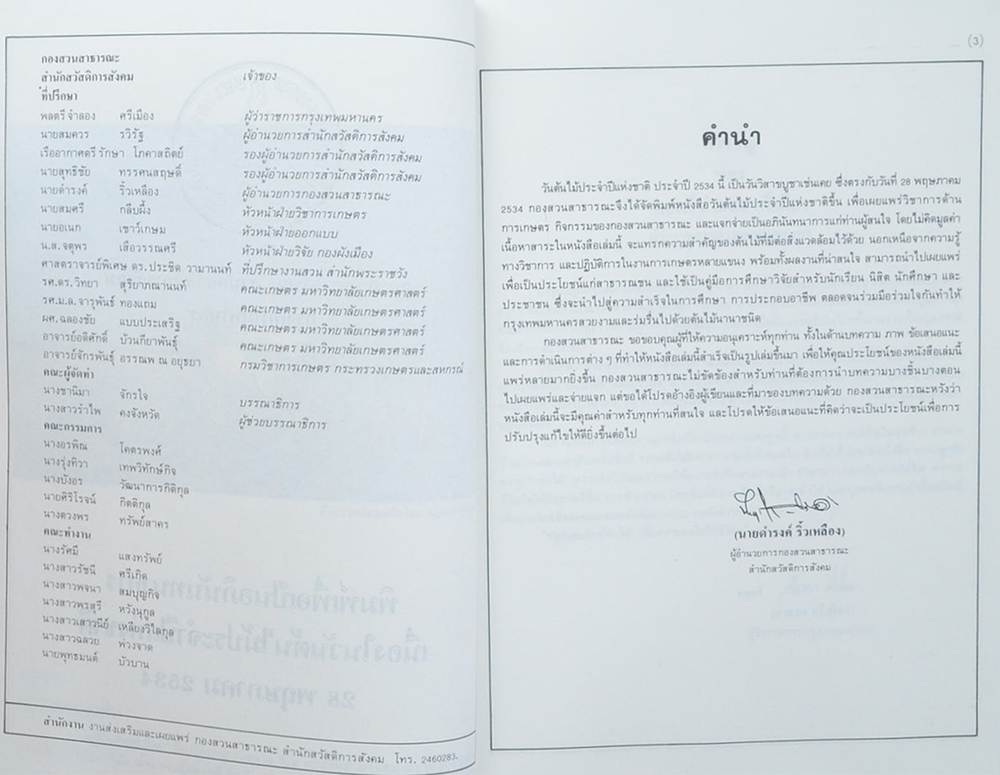 กองสวนสาธารณะ
สำนักสวัสดิการสังคม เจ้าของ
ที่ปรึกษา
พลตรี จำลอง ศรีเมือง ผู้ว่าราชการกรุงเทพมหานคร
นายสมควร รวิรัฐ ผู้อำนวยการสำนักสวัสดิการสังคม
เรืออากาศตรี รักษา โภคาสถิตย์ รองผู้อำนวยการสำนักสวัสดิการสังคม
นายสุทธิชัย ทรรศนสฤษดิ์ รองผู้อำนวยการสำนักสวัสดิการสังคม
นายดำรงค์ ริ้วเหลือง ผู้อำนวยการกองสวนสาธารณะ
นายสมศรี กลีบผึ้ง หัวหน้าฝ่ายวิชาการเกษตร
นายอเนก เชาว์เกษม หัวหน้าฝ่ายออกแบบ
น.ส.จตุพร เสือวรรณศรี หัวหน้าฝ่ายวิจัย กองผังเมือง
ศาสตราจารย์พิเศษ ดร.ประชิด วามานนท์ ที่ปรึกษางานสวน สำนักพระราชวัง
รศ.ดร.วิทยา สุริยาภณานนท์ คณะเกษตร มหาวิทยาลัยเกษตรศาสตร์
รศ.ม.ล.จารุพันธ์ ทองแถม คณะเกษตร มหาวิทยาลัยเกษตรศาสตร์
ผศ.ฉลองชัย แบบประเสริฐ คณะเกษตร มหาวิทยาลัยเกษตรศาสตร์
อาจารย์อติศักดิ์ บ้วนกียาพันธุ์ คณะเกษตร มหาวิทยาลัยเกษตรศาสตร์
อาจารย์จักรพันธุ์ อรรณพ ณ อยุธยา กรมวิชาการเกษตร กระทรวงเกษตรและสหกรณ์
คณะผู้จัดทำ
นางชานิมา จักรใจ บรรณาธิการ
นางสาวรำไพ คงจังหวัด ผู้ช่วยบรรณาธิการ
คณะกรรมการ
นางอรพิณ โคตรพงศ์
นางรุ่งทิวา เทพวิทักษ์กิจ
นางบังอร วัฒนาการกิติกุล
นายศิริโรจน์ กิตติกุล
นางดวงพร ทรัพย์สาคร
คณะทำงาน
นางรัศมี แสงทรัพย์
นางสาวรัชนี ศรีเกิด
นางสาวพจนา สมบุญกิจ
นางสาวพรสุรี หวังนุกูล
นางสาวเสาวนีย์ เหลียงวิไลกุล
นางสาวฉลวย พ่วงจาด
นายพุทธมนต์ บัวบาน
สำนักงาน งานส่งเสริมและเผยแพร่ กองสวนสาธารณะ สำนักสวัสดิการสังคม โทร. 2460283.
(3)
คำนำ
วันต้นไม้ประจำปีแห่งชาติ ประจำปี 2534 นี้ เป็นวันวิสาขบูชาเช่นเคย ซึ่งตรงกับวันที่ 28 พฤษภาคม
2534 กองสวนสาธารณะจึงได้จัดพิมพ์หนังสือวันต้นไม้ประจำปีแห่งชาติขึ้น เพื่อเผยแพร่วิชาการด้าน
การเกษตร กิจกรรมของกองสวนสาธารณะ และแจกจ่ายเป็นอภินันทนาการแก่ท่านผู้สนใจ โดยไม่คิดมูลค่า
เนื้อหาสาระในหนังสือเล่มนี้ จะแทรกความสำคัญของต้นไม้ที่มีต่อสิ่งแวดล้อมไว้ด้วย นอกเหนือจากความรู้
ทางวิชาการ และปฏิบัติการในงานการเกษตรหลายแขนง พร้อมทั้งผลงานที่น่าสนใจ สามารถนำไปเผยแพร่
เพื่อเป็นประโยชน์แก่สาธารณชน และใช้เป็นคู่มือการศึกษาวิจัยสำหรับนักเรียน นิสิต นักศึกษา และ
ประชาชน ซึ่งจะนำไปสู่ความสำเร็จในการศึกษา การประกอบอาชีพ ตลอดจนร่วมมือร่วมใจกันทำให้
กรุงเทพมหานครสวยงามและร่มรื่นไปด้วยต้นไม้นานาชนิด
กองสวนสาธารณะ ขอขอบคุณผู้ที่ให้ความอนุเคราะห์ทุกท่าน ทั้งในด้านบทความ ภาพ ข้อเสนอแนะ
และการดำเนินการต่าง ๆ ที่ทำให้หนังสือเล่มนี้สำเร็จเป็นรูปเล่มขึ้นมา เพื่อให้คุณประโยชน์ของหนังสือเล่มนี้
แพร่หลายมากยิ่งขึ้น กองสวนสาธารณะไม่ขัดข้องสำหรับท่านที่ต้องการนำบทความบางชิ้นบางตอน
ไปเผยแพร่และจ่ายแจก แต่ขอได้โปรดอ้างอิงผู้เขียนและที่มาของบทความด้วย กองสวนสาธารณะหวังว่า
หนังสือเล่มนี้จะมีคุณค่าสำหรับทุกท่านที่สนใจ และโปรดให้ข้อเสนอแนะที่คิดว่าจะเป็นประโยชน์เพื่อการ
ปรับปรุงแก้ไขให้ดียิ่งขึ้นต่อไป
(นายดำรงค์ ริ้วเหลือง)
ผู้อำนวยการกองสวนสาธารณะ
สำนักสวัสดิการสังคม